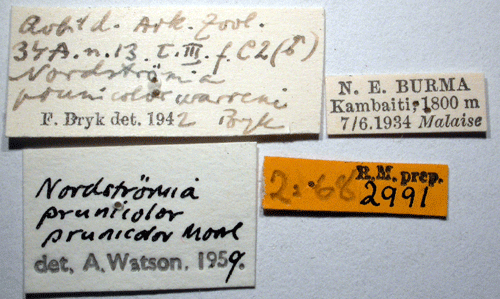 Avbild. Ark. Zool.
34A. n. 13. t. III. f. C2 (♂)
Nordströmia
prunicolor warreni
F. Bryk det. 1942 Bryk
N. E. BURMA
Kambaiti, 1800 m
7/6.1934 Malaise
Nordströmia
prunicolor
prunicolor Moore
det. A. Watson. 1959.
R.M. prep.
2991